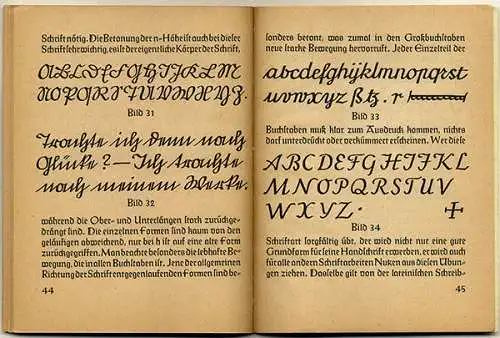 Schrift nötig. Die Betonung der n-Höhe ist auch bei dieser
Schrift sehr wichtig, es ist der eigentliche Körper der Schrift,
ABCDEFGHIJKLM
NOPQRSTUVWXYZ.
Bild 31
Trachte ich denn nach
Glücke? – Ich trachte
nach meinem Werke.
Bild 32
während die Ober- und Unterlängen stark zurückge-
drängt sind. Die einzelnen Formen sind kaum von den
geläufigen abweichend, nur bei h ist auf eine alte Form
zurückgegriffen. Man beachte besonders die lebhafte Be-
wegung, die in allen Buchstaben ist. Jene der allgemeinen
Richtung der Schrift entgegenlaufenden Formen sind be-
44
sonders betont, was zumal in den Großbuchstaben
neue starke Bewegung hervorruft. Jeder Einzelteil der
abcdefghijklmnopqrst
uvwxyz ßtz . r
Bild 33
Buchstaben muß klar zum Ausdruck kommen, nichts
darf unterdrückt oder verkümmert erscheinen. Wer diese
ABCDEFGHIJKL
MNOPQRSTUV
WXYZ ·
Bild 34
Schriftart sorgfältig übt, der wird nicht nur eine gute
Grundform für seine Handschrift erwerben, er wird auch
für alle andern Schriftarbeiten Nutzen aus diesen Übun-
gen ziehen. Dasselbe gilt von der lateinischen Schreib-
45